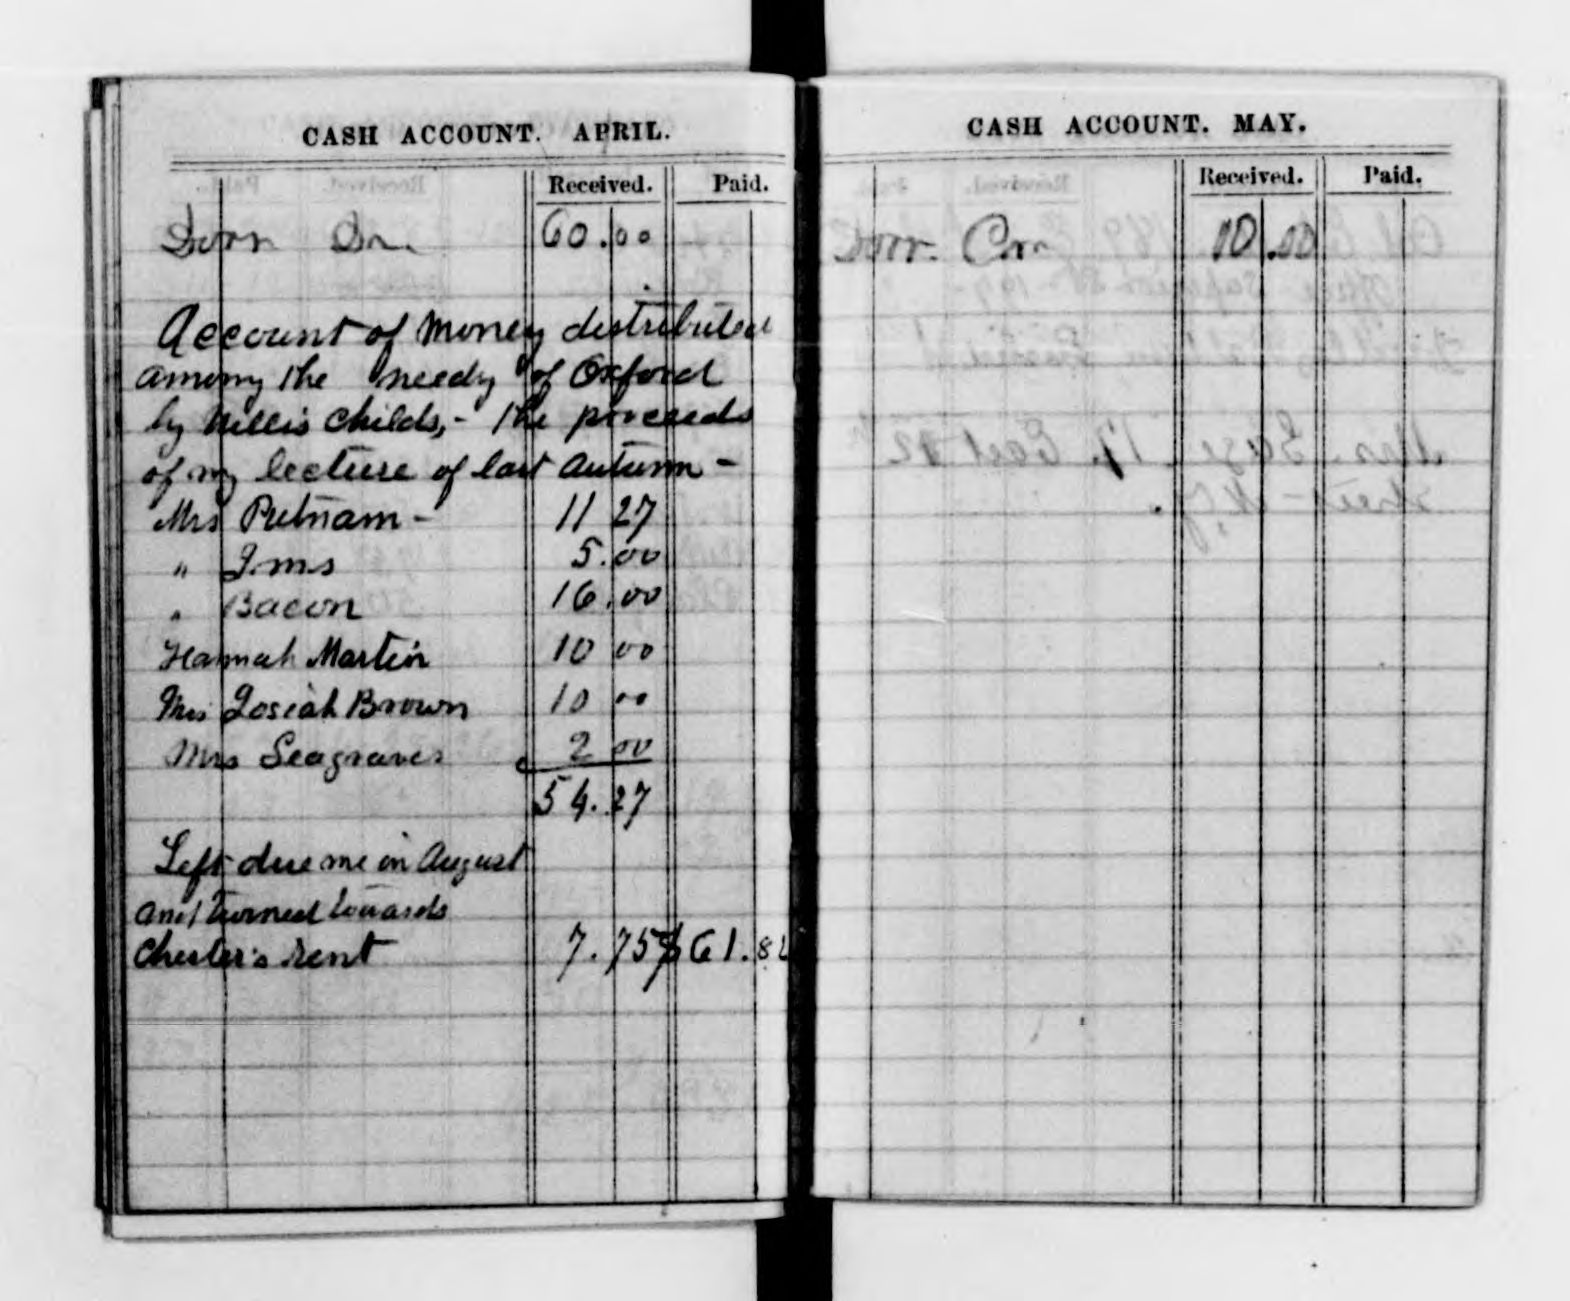 CASH ACCOUNT. APRIL.
Received. Paid.
Dorr Dn 60.00
Account of money distributed
among the needy of Oxford
by Nellis Childs, - the proceeds
of my lecture of last autumn -
Mrs Putnam - 11 27
" Ims 5.00
" Bacon 16.00
Hannah Martin 10 00
Mrs Josiah Brown 10 00
Mrs Seagraves 2 00
54.27
Left due me in August
and turned towards
Chester's rent 7.75 $61.82
CASH ACCOUNT. MAY.
Received. Paid.
Dorr. 10.00